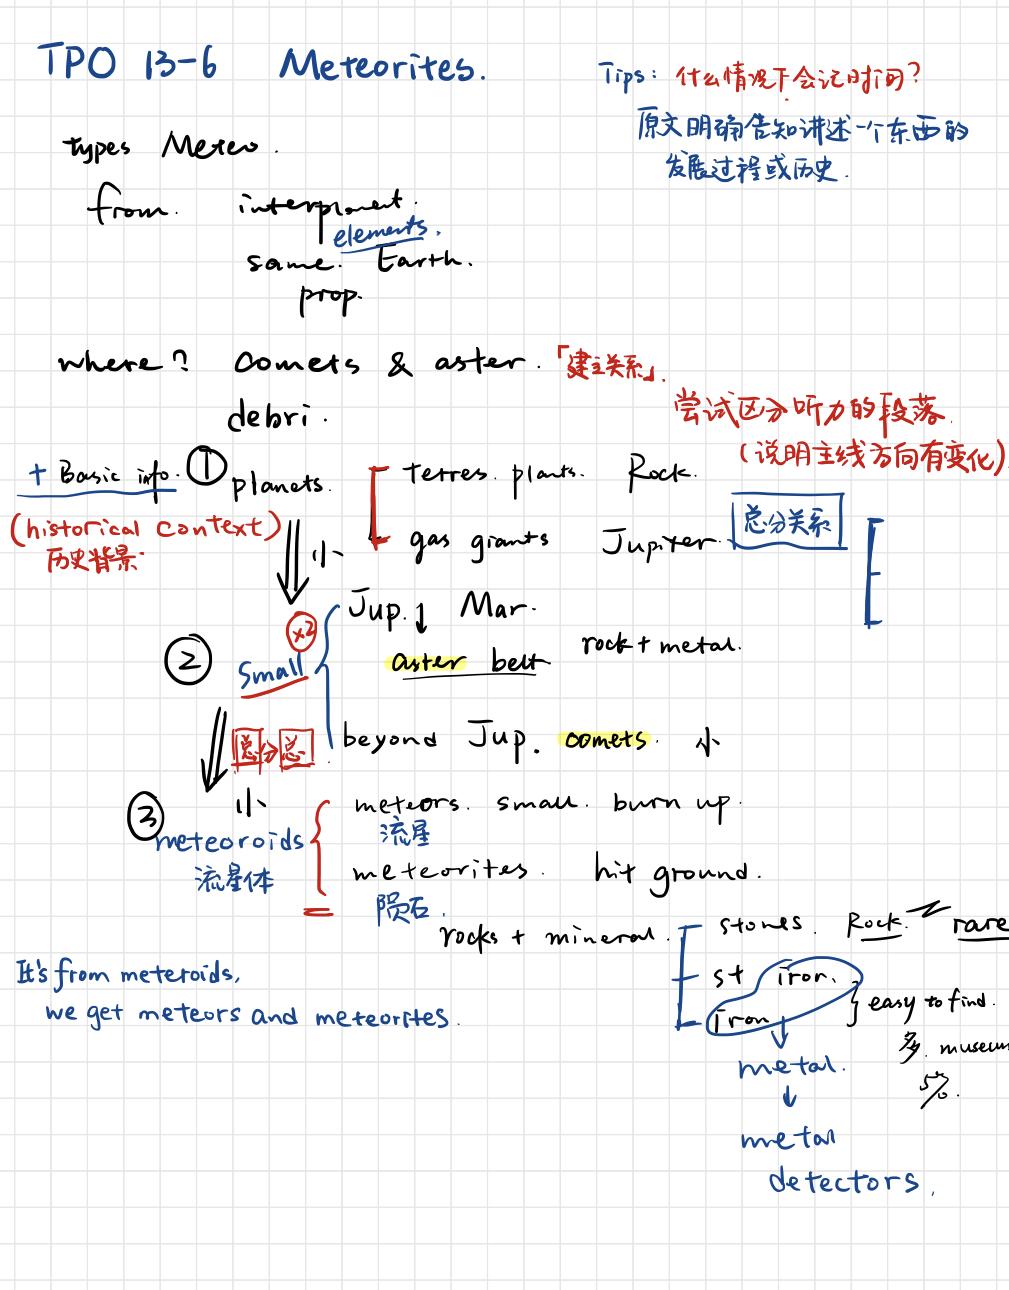 TPO 13-6 Meteorites.
Tips: 什么情况下会记时间?
原文明确告知讲述一个东西的
发展过程或历史.
types Meteo.
from. interplanet.
elements.
same. Earth.
prop.
where? comets & aster. 「建立关系」.
debri.
尝试区分听力的段落
(说明主线方向有变化)
+ Basic info. ① planets. terres. plants. Rock.
(historical context)
历史背景.
小
gas giants Jupiter
总分关系
Jup. ↓ Mar.
②
x2
Small
aster belt rock + metal.
总分总
beyond Jup. comets. 小
③ 小
meteoroids
流星体
meteors. small. burn up.
流星
meteorites. hit ground.
陨石.
rocks + mineral. stones. Rock. rare
st iron.
iron
easy to find.
多. museum
5%.
It's from meteroids,
we get meteors and meteorites.
metal.
↓
metal
detectors.